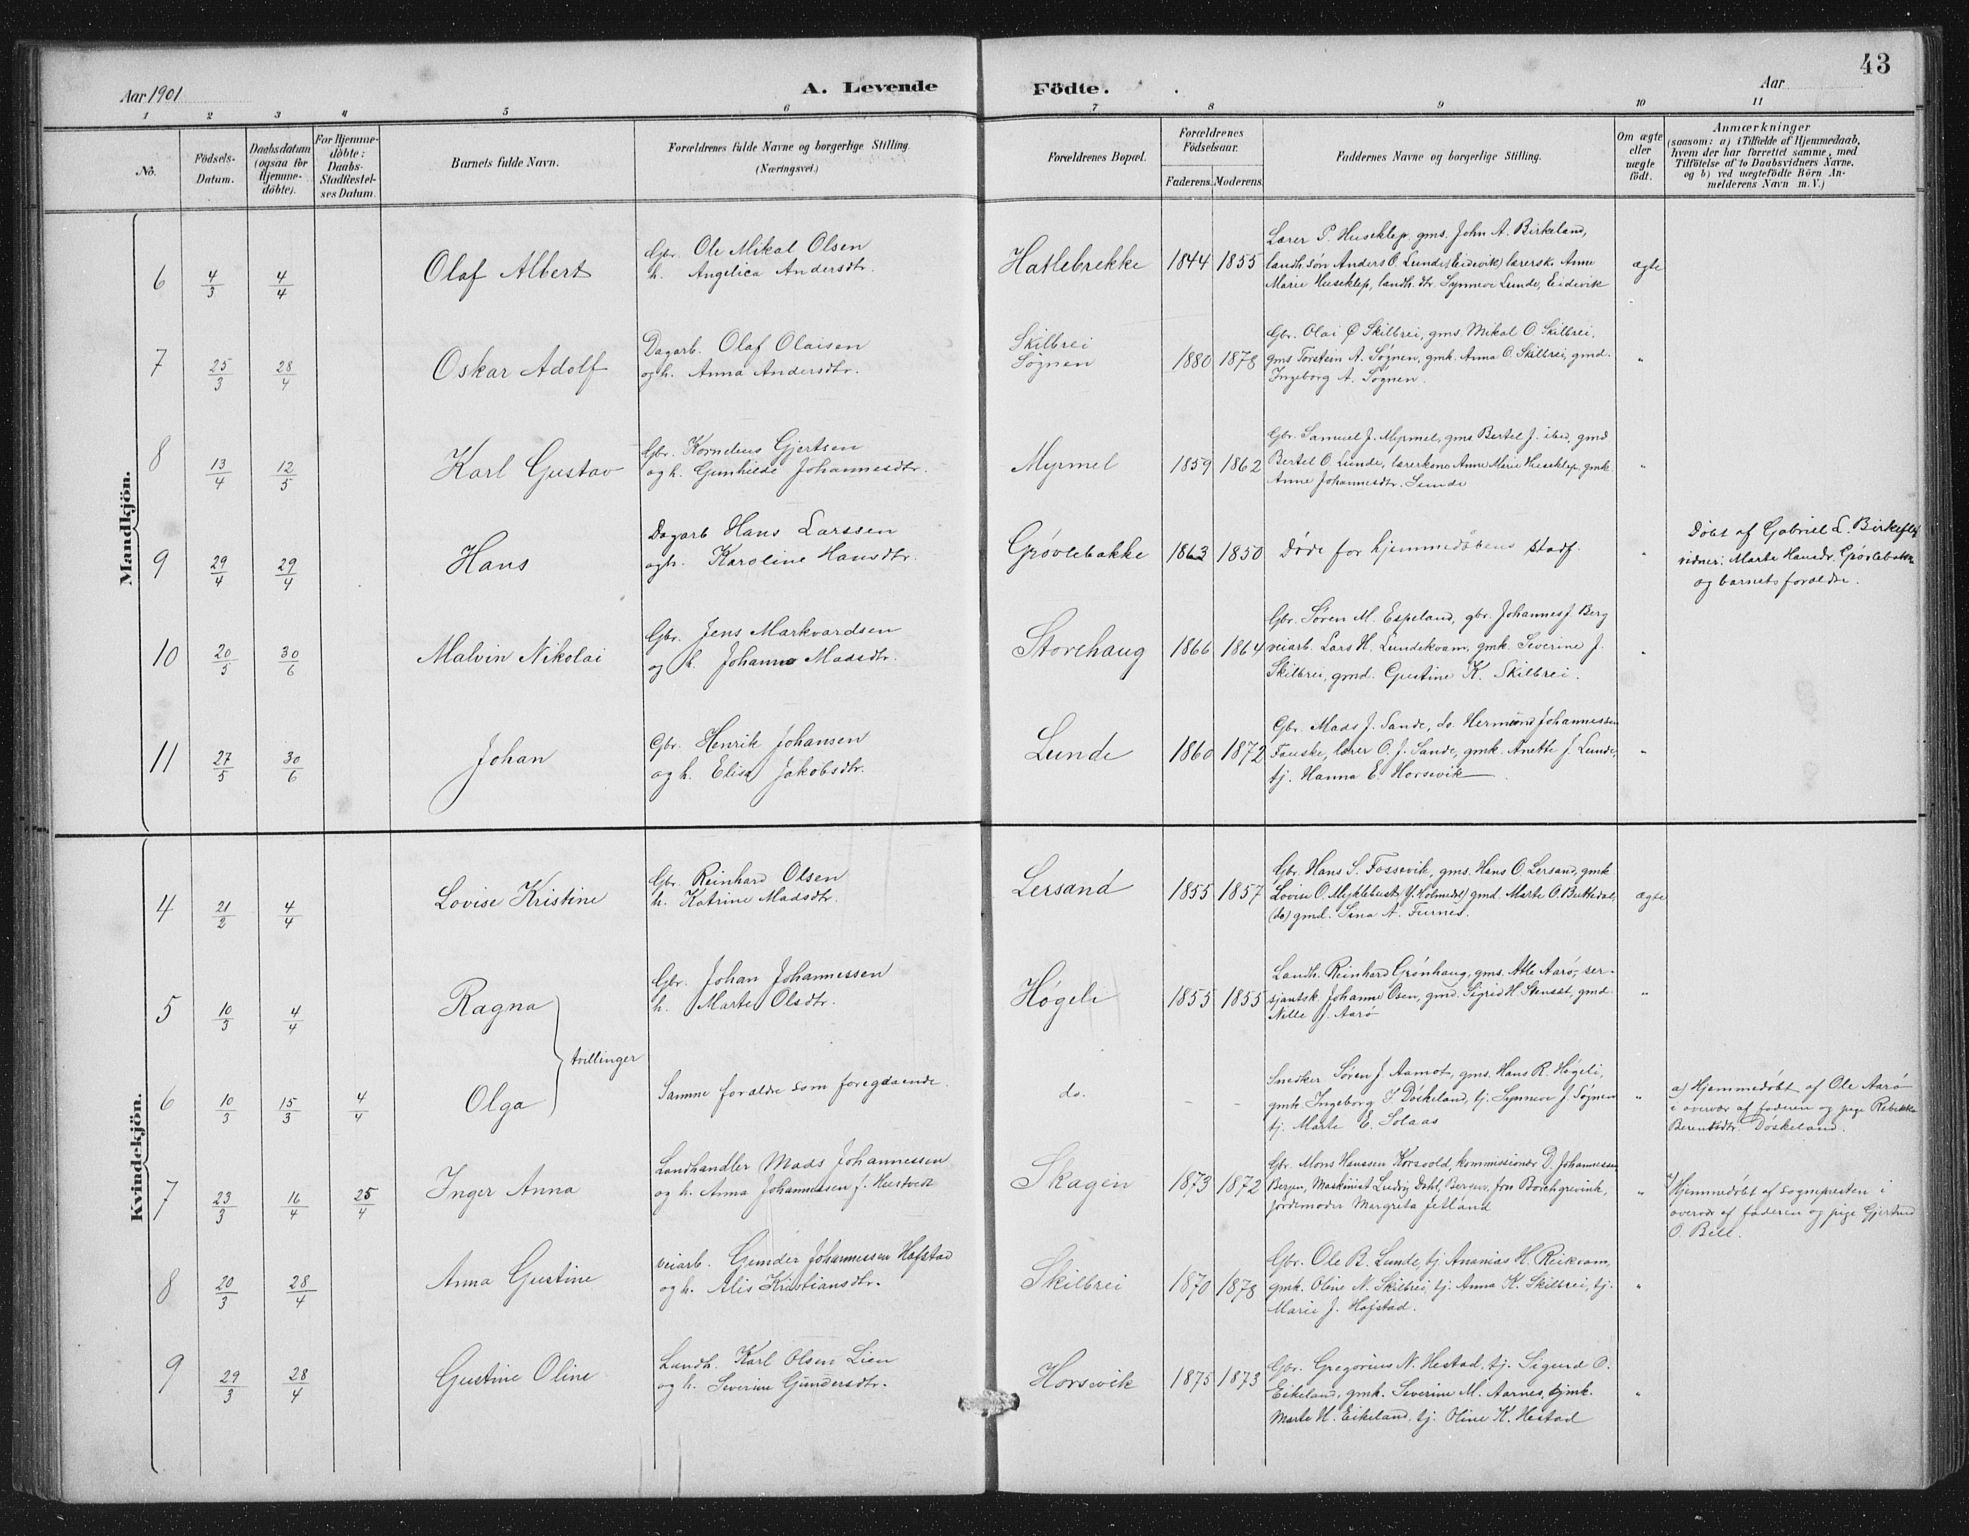 Aar 1901
A. Levende
Födte.
Aar
43
1 2 3 4 5 6 7 8 9 10 11
No.
Födsels-
Datum.
Daabsdatum
(ogsaa for
Hjemme-
döbte).
For Hjemme-
döbte:
Daabs-
Stadfæstel-
ses Datum.
Barnets fulde Navn.
Forældrenes fulde Navne og borgerlige Stilling.
(Næringsvei.)
Forældrenes Bopæl.
Forældrenes
Födselsaar.
Faderens. Moderens.
Faddernes Navne og borgerlige Stilling.
Om ægte
eller
uægte
födt.
Anmærkninger
(saasom: a) i Tilfælde af Hjemmedaab,
hvem der har forrettet samme, med
Tilföielse af to Daabsvidners Navne,
og b) ved uægtefödte Börn An-
melderens Navn m. V.)
Mandkjön.
6 4/3 4/4 Olaf Albert
Gbr. Ole Mikal Olsen
h. Angelica Andersdtr.
Hatlebrekke 1844 1855
Lærer P. Huseklep, gms. John A. Birkeland,
landh. søn Anders O. Lunde (Eidevik) lærersk. Anne
Marie Huseklep, landh. dtr. Synneve Lunde, Eidevik
ægte
7 25/3 28/4 Oskar Adolf
Dagarb. Olaf Olaisen
og h. Anna Andersdtr.
Skilbrei
Søgnen
1880 1878
Gbr. Olai O Skilbrei, gms Mikal O. Skilbrei,
gms Torstein A. Søgnen, gmk. Anna O. Skilbrei, gmd.
Ingeborg A. Søgnen.
"
8 13/4 12/5 Karl Gustav
Gbr. Kornelius Gjertsen
og h. Gunhilde Johannesdtr.
Myrmel 1859 1862
Gbr. Samuel J. Myrmel, gms Bertel J. ibid, gmd
Bertel O. Lunde, lærerkone Anne Marie Huseklep, gmk.
Anne Johannesdtr. Lunde
"
9 29/4 29/4 Hans
Dagarb Hans Larssen
og h. Karoline Hansdtr.
Grøvlebakke 1863 1850
Døde før hjemmedåbens stadf.
"
Døbt af Gabriel L.
vidner: Marte Hansdr. Grøvlebakke
og barnets forældre.
10 20/5 30/6 Malvin Nikolai
Gbr. Jens Markvardsen
og h. Johanne Madsdtr.
Storehaug 1866 1864
Gbr. Søren M. Espeland, gbr. Johannes J. Berg
veiarb. Lars H. Lundekvam, gmk. Severine J.
Skilbrei, gmd. Gustine K. Skilbrei.
"
11 27/5 30/6 Johan
Gbr. Henrik Johansen
og h. Elisa Jakobsdtr.
Lunde 1860 1872
Gbr. Mads J. Sande, do. Hermund Johannessen
Fauske, lærer O. J. Sande, gmk. Anette J. Lunde,
tj. Hanna E. Horsevik
"
Kvindekjön.
4 21/2 4/4 Lovise Kristine
Gbr. Reinhard Olsen
h. Katrine Madsdtr.
Lersand 1855 1857
Gbr. Hans S. Fossevik, gms. Hans O Lersand, gmk
Lovise O. Myklebust (Y. Holmedal) gmd. Marte O. Buttedal,
(do) gmd. Sina A. Furnes.
ægte
5 10/3 4/4 Ragna
tvillinger
Gbr. Johan Johannessen
h. Marte Olsdtr.
Høgeli 1855 1855
Landh. Reinhard Grønhaug, gms. Atle Aarø, ser-
sjantsk. Johanne Osen, gmd. Sigrid H. Stensæt, gmd.
Nille J. Aarø
"
6 10/3 15/3 4/4 Olga
Samme foraldre som foregaaende.
do. - -
Snedker Søren J. Aamot, gms. Hans R. Høgeli,
gmk. Ingeborg S Døskeland, tj. Synneve J. Søgnen
tj. Marte E. Solaas
"
a) Hjemmedøbt af Ole Aarø
i overvær af faderen og pige Rebekka
Berentsdtr. Døskeland.
7 23/3 16/4 25/4 Inger Anna
Landhandler Mads Johannessen
og h. Anna Johannessen f. Hustvedt
Skagen 1873 1872
Gbr. Mons Hanssen Korsvold, kommissionær D. Johannessen
Bergen, Maskinist Ludvig Dahl, Bergen, frø Borchgrevink,
Jordemoder Margreta Jetland
"
Hjemmedøbt af sognepresten i
overvær af faderen og pige Gjertrud
O. Bell.
8 20/3 28/4 Anna Gustine
veiarb. Gunder Johannessen Hafstad
og h. Alis Kristiansdtr.
Skilbrei 1870 1878
Gbr. Ole B. Lunde, tj. Ananias H. Reikvam,
gmk. Oline N. Skilbrei, tj. Anna K. Skilbrei, tj.
Marie J. Hafstad.
"
9 29/3 28/4 Gustine Oline
Landh. Karl Olsen Lien
og h. Severine Gundersdtr.
Horsevik 1875 1873
Gbr. Gregorius N. Hestad, tj. Sigurd O.
Eikeland, gmk. Severine M. Aarnes, tjmk.
Marte H. Eikeland, tj. Oline K. Hestad
"